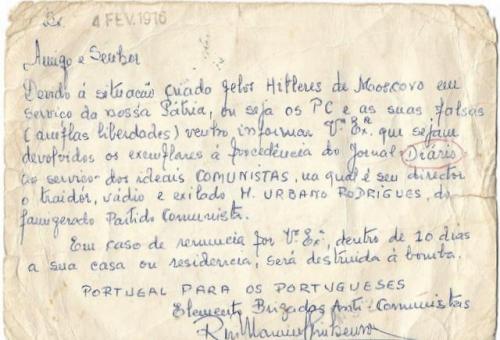 4 FEV. 1976
Amigo e Senhor
Devido á situação criado pelos Hitleres de Moscovo em
serviço da nossa Pátria, ou seja os PC e as suas falsas
(amplas liberdades) venho informar V.ª Ex.ª que sejam
devolvidos os exemplares á procedência do jornal Diário
ao serviço dos ideais COMUNISTAS, na qual é seu director
o traidor, vádio e exilado M. URBANO RODRIGUES, do
famigerado Partido Comunista.
Em caso de renuncia por V.ª Ex.ª, dentro de 10 dias
a sua casa ou residencia, será destruida à bomba.
PORTUGAL PARA OS PORTUGUESES
Elemento Brigadas Anti-Comunistas